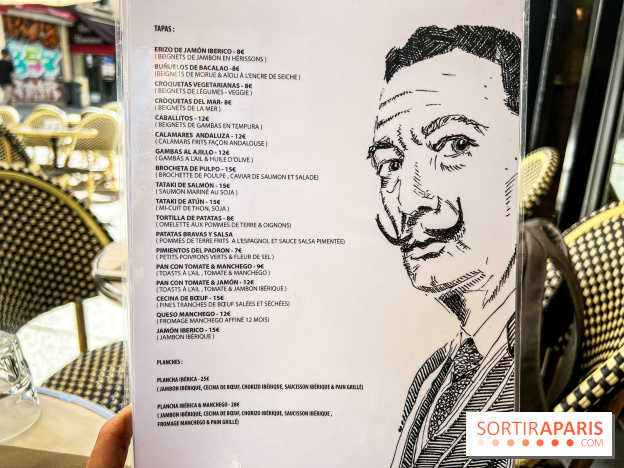 TAPAS :
ERIZO DE JAMÓN IBERICO - 8€
( BEIGNETS DE JAMBON EN HÉRISSONS )
BUÑUELOS DE BACALAO -8€
(BEIGNETS DE MORUE & AÏOLI À L'ENCRE DE SEICHE )
CROQUETAS VEGETARIANAS - 8€
( BEIGNETS DE LÉGUMES - VEGGIE )
CROQUETAS DEL MAR- 8€
( BEIGNETS DE LA MER )
CABALLITOS - 12€
( BEIGNETS DE GAMBAS EN TEMPURA )
CALAMARES ANDALUZA - 12€
( CALAMARS FRITS FAÇON ANDALOUSE )
GAMBAS AL AJILLO - 12€
( GAMBAS A L'AIL & HUILE D'OLIVE )
BROCHETA DE PULPO - 15€
( BROCHETTE DE POULPE , CAVIAR DE SAUMON ET SALADE)
TATAKI DE SALMÓN - 15€
( SAUMON MARINÉ AU SOJA )
TATAKI DE ATÚN - 15€
( MI-CUIT DE THON, SOJA )
TORTILLA DE PATATAS - 8€
( OMELETTE AUX POMMES DE TERRE & OIGNONS)
PATATAS BRAVAS Y SALSA
( POMMES DE TERRE FRITS A L'ESPAGNOL ET SAUCE SALSA PIMENTÉE)
PIMIENTOS DEL PADRON - 7€
( PETITS POIVRONS VERTS & FLEUR DE SEL )
PAN CON TOMATE & MANCHEGO - 9€
(TOASTS À L'AIL , TOMATE & MANCHEGO )
PAN CON TOMATE & JAMÓN - 12€
(TOASTS À L'AIL , TOMATE & JAMBON IBERIQUE )
CECINA DE BŒUF - 15€
( FINES TRANCHES DE BŒUF SALÉES ET SÉCHÉES)
QUESO MANCHEGO - 12€
( FROMAGE MANCHEGO AFFINÉ 12 MOIS)
JAMÓN IBERICO - 15€
( JAMBON IBÉRIQUE )
PLANCHES :
PLANCHA IBÉRICA - 25€
( JAMBON IBÉRIQUE, CECINA DE BŒUF, CHORIZO IBÉRIQUE, SAUCISSON IBÉRIQUE & PAIN GRILLÉ)
PLANCHA IBÉRICA & MANCHEGO - 28€
( JAMBON IBÉRIQUE, CECINA DE BŒUF, CHORIZO IBÉRIQUE, SAUCISSON IBÉRIQUE ,
FROMAGE MANCHEGO & PAIN GRILLÉ)
SORTIRAPARIS
.COM